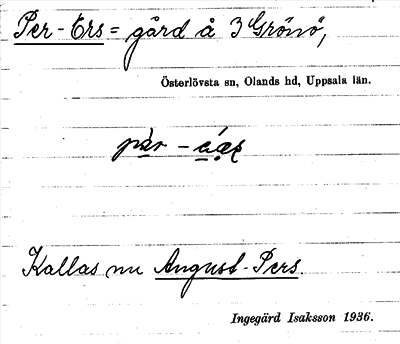 Per-Ers = gård å 3 Grönö,
Österlövsta sn, Olands hd, Uppsala län.
Kallas nu August-Pers.
Ingegärd Isaksson 1936.